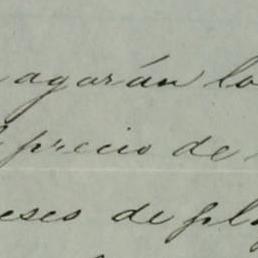 agarán lo
precio de
eses de pl